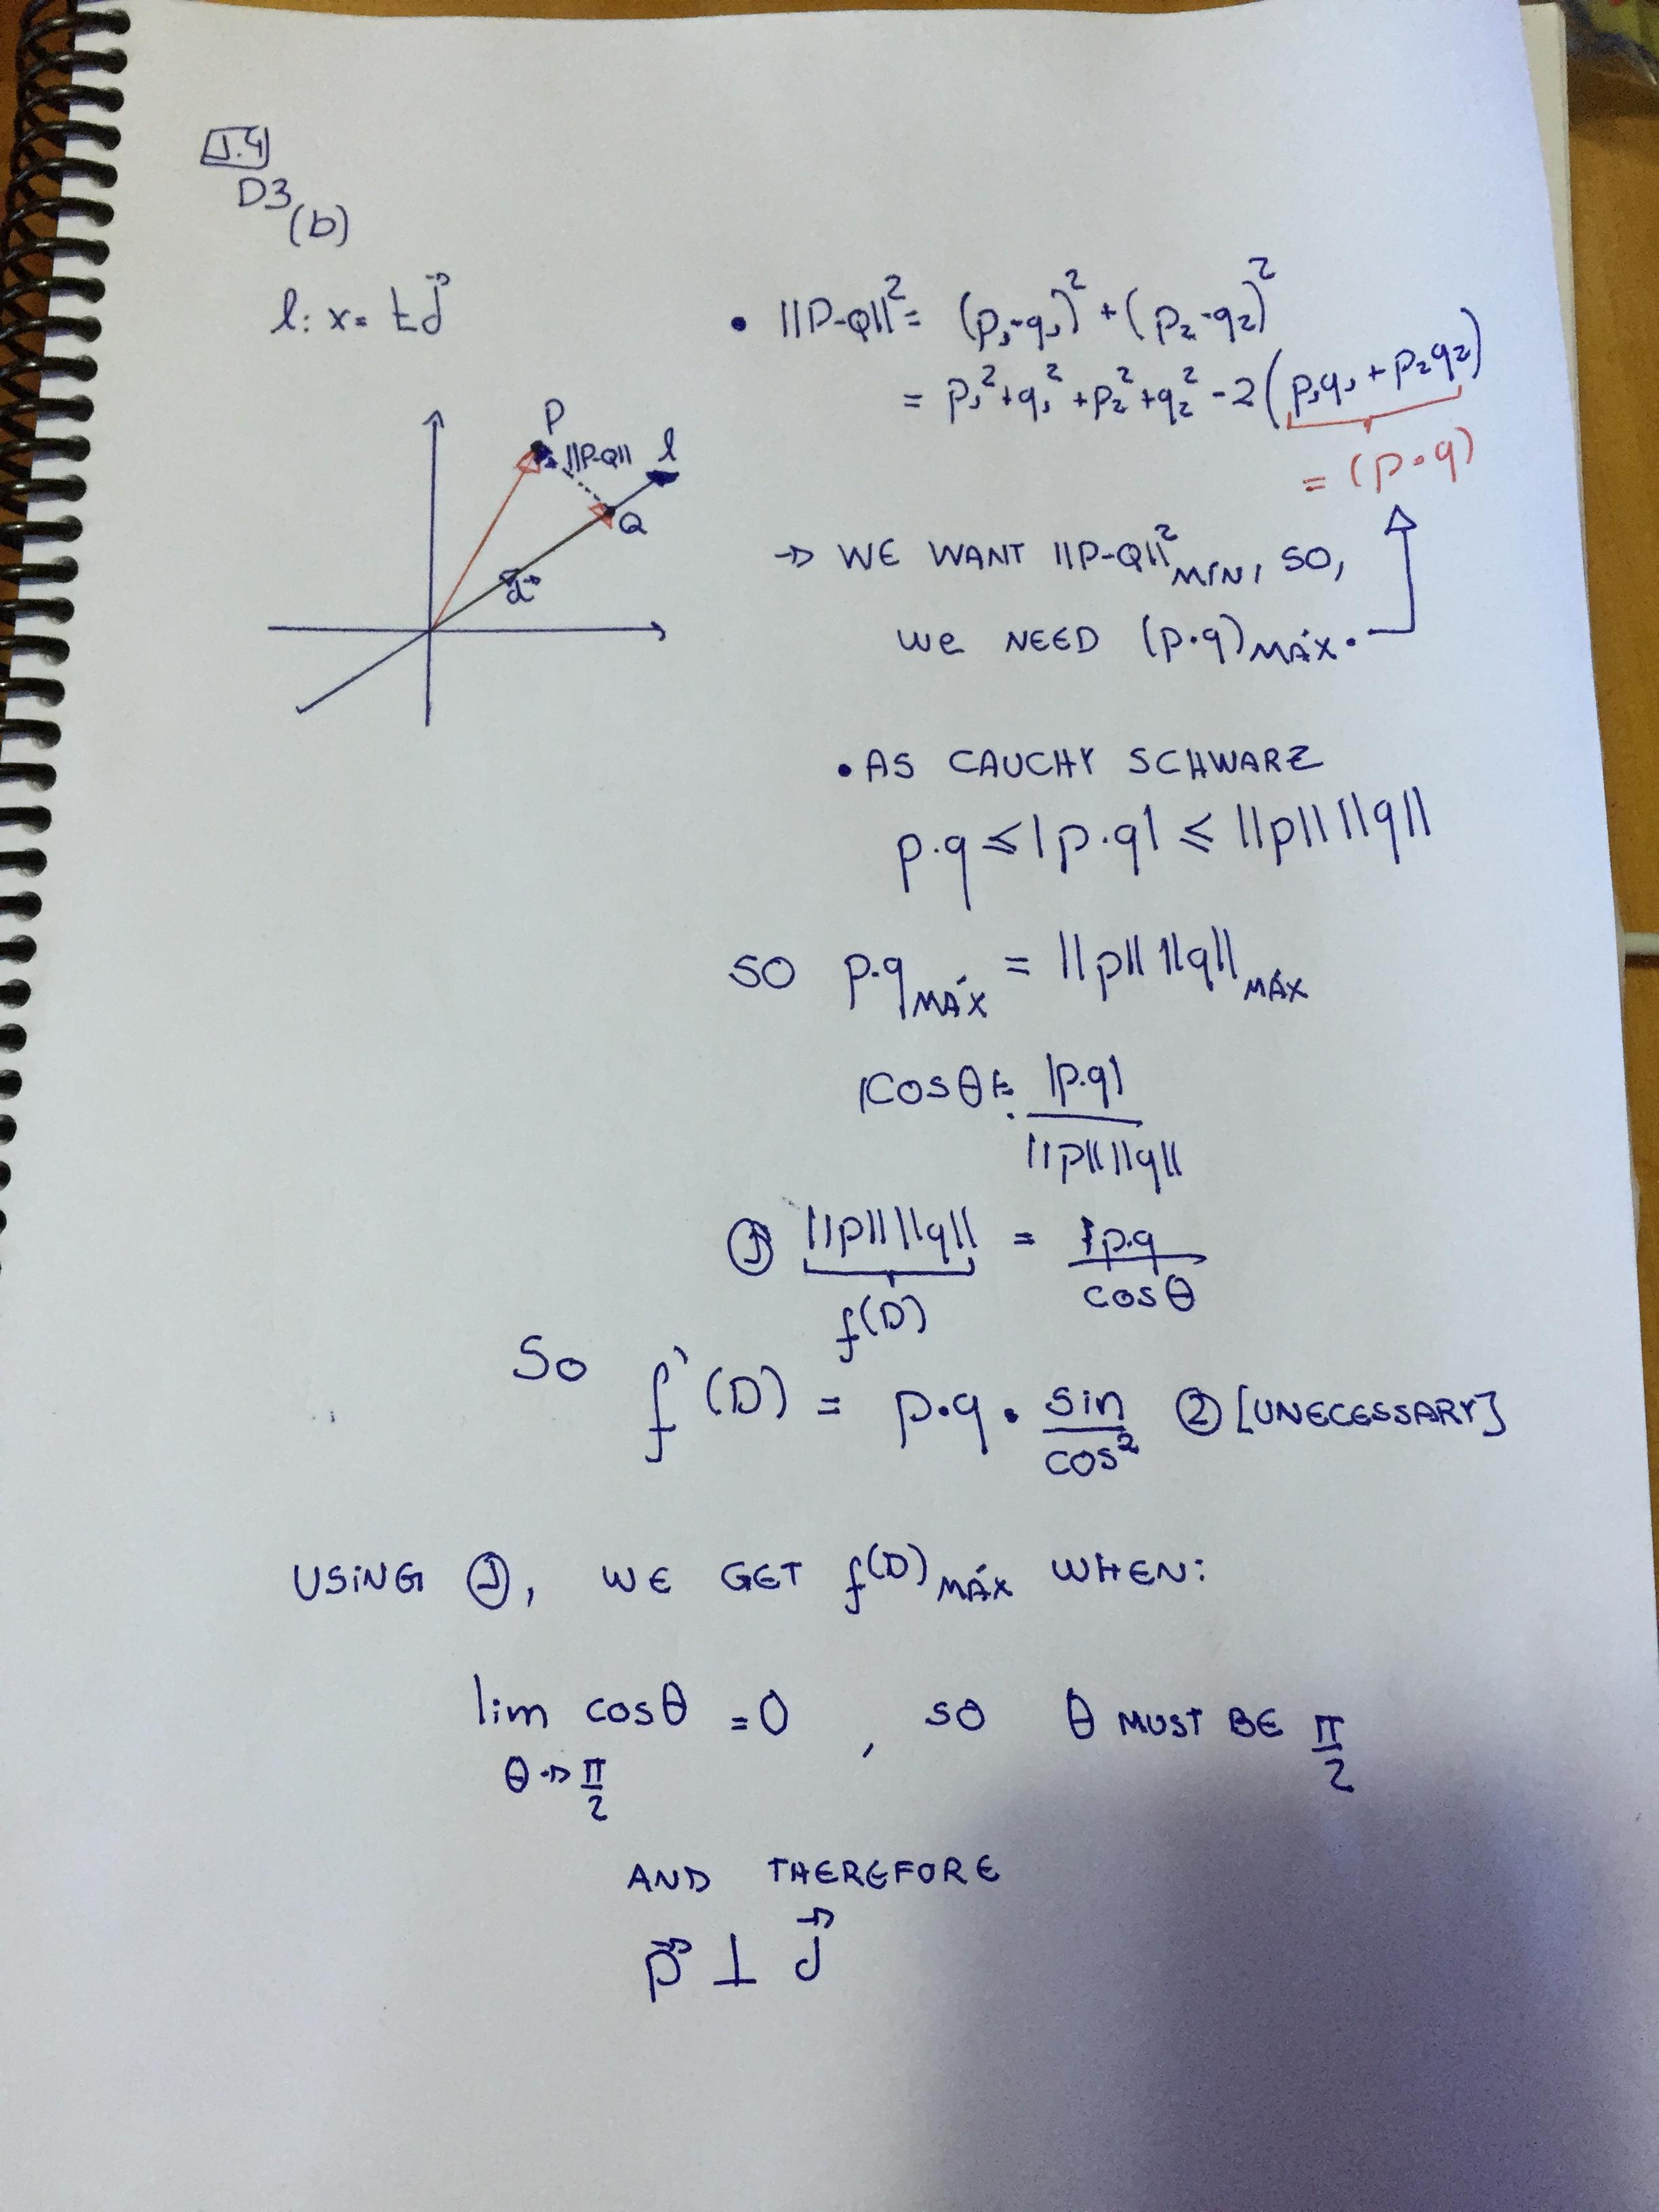 1.4
D3
(b)
l: x = t d⃗
P
||P-Q||
l
Q
d⃗
• ||P-Q||² = (p₁-q₁)² + (p₂-q₂)²
= p₁² + q₁² + p₂² + q₂² - 2(p₁q₁ + p₂q₂)
= (p•q)
→ WE WANT ||P-Q||² MÍN, SO,
WE NEED (p·q) MÁX.
• AS CAUCHY SCHWARZ
p·q ≤ |p·q| ≤ ||p|| ||q||
SO p·q MÁX = ||p|| ||q|| MÁX
|cosθ| = |p·q| / ||p|| ||q||
① ||p|| ||q|| = p·q / cosθ
f(D)
So f'(D) = p•q • sin / cos² ② [UNECESSARY]
USING ①, WE GET f(D) MÁX WHEN:
lim cosθ = 0, SO θ MUST BE π/2
θ→π/2
AND THEREFORE
p⃗ ⊥ d⃗